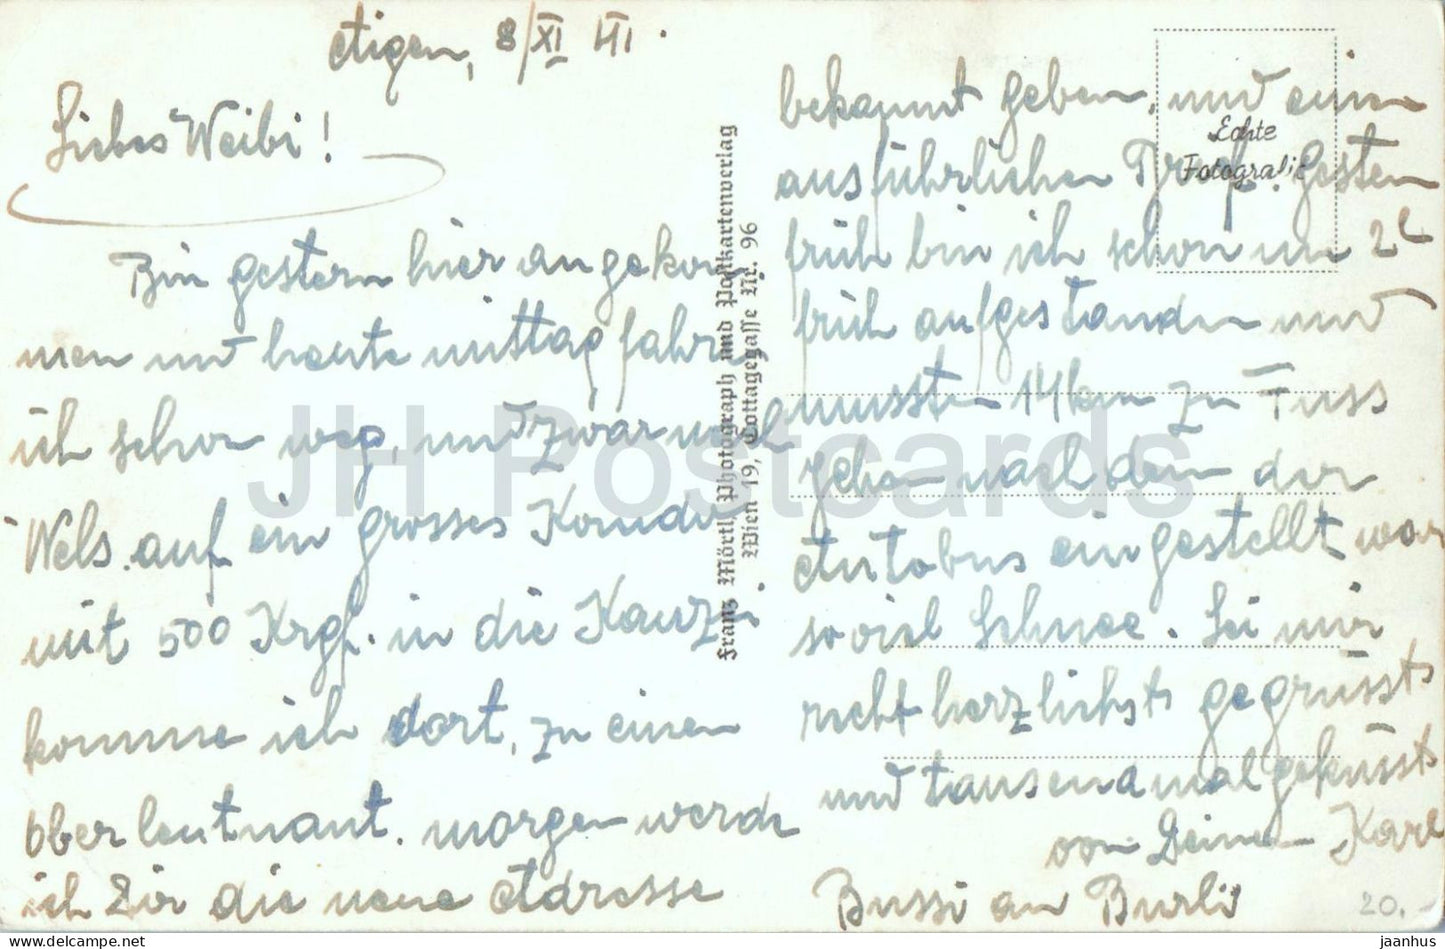 Aigen, 8/XI 41.
Liebes Weibi!
Bin gestern hier angekom
men und heute mittag fahre
ich schon weg, und zwar nach
Wels. auf ein grosses Komdo
mit 500 Krgf. in die Kanzlei
komme ich dort, zu einem
Oberleutnant. morgen werde
ich Dir die neue Adresse
bekannt geben, und einen
ausführlichen Brief. Gestern
früh bin ich schon um 2h
früh aufgestanden und
mussten 14 km zu Fuss
gehen nach dem der
Autobus eingestellt war
soviel Schnee. Sei mir
recht herzlichst gegrüsst
und tausendmal geküsst
von Deinem Karl
Bussi an Burli
Echte
Fotografie
Franz Mörtl, Photograph und Postkartenverlag
Wien 19, Cottagegasse Nr. 96
20.-
JH Postcards
jaanhus @ delcampe.net